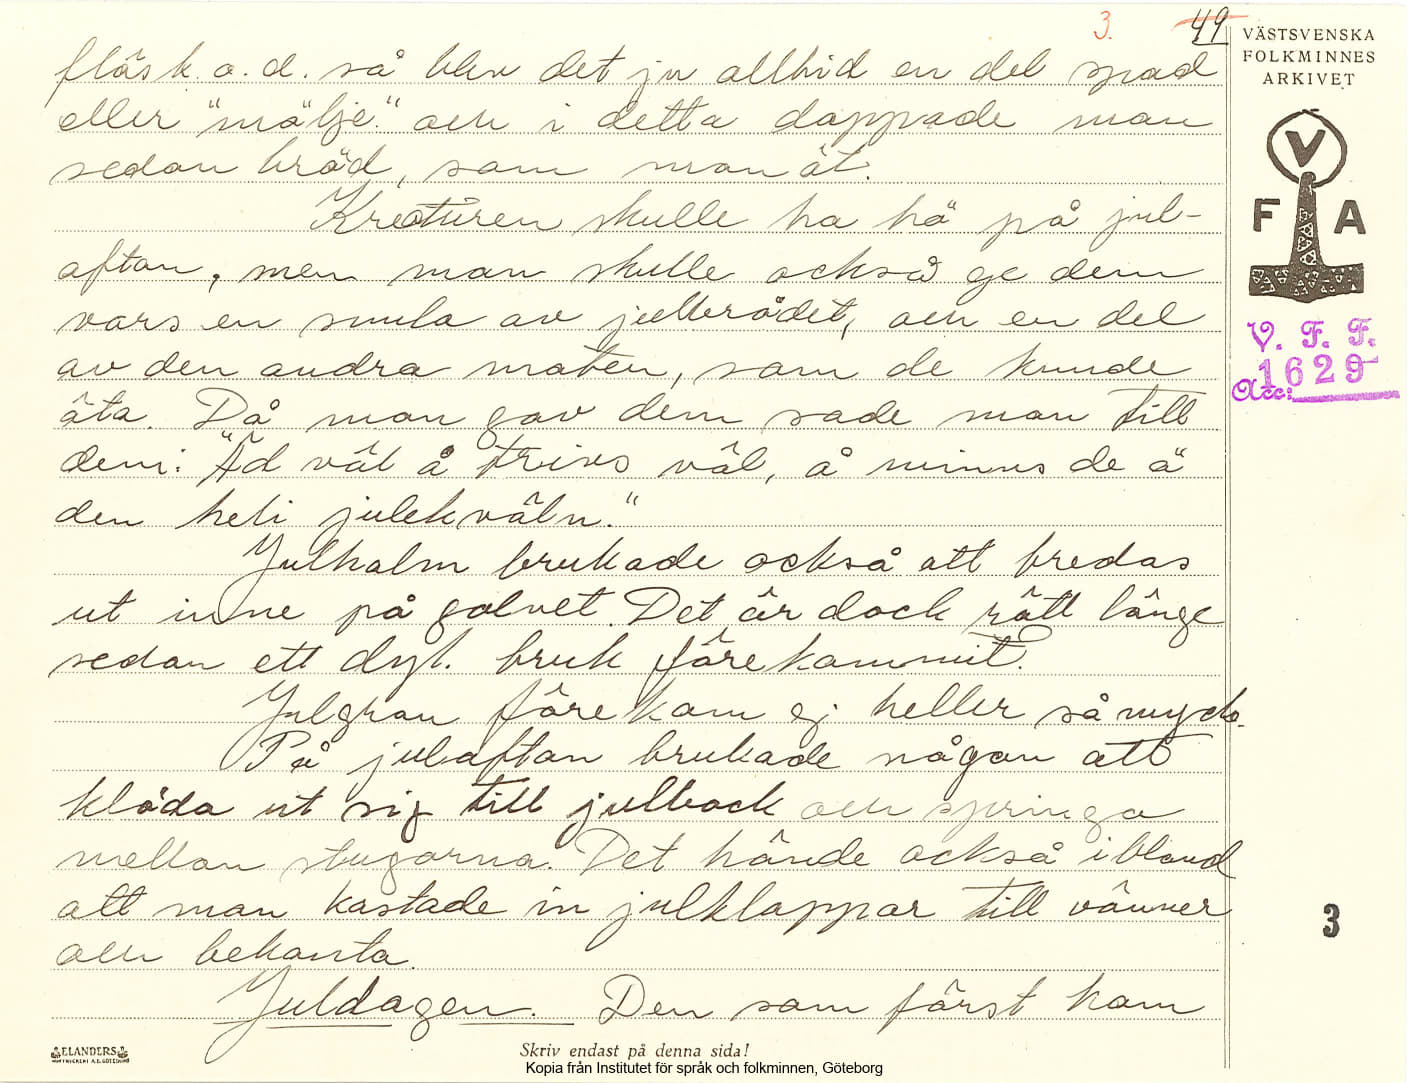 3. 49
VÄSTSVENSKA
FOLKMINNES
ARKIVET
V
F A
V. F. F.
Acc: 1629
fläsk o.d. så blev det ju alltid en del spad
eller "mölje" och i detta doppade man
sedan bröd, som man åt.
Kreaturen skulle ha hö på jul-
afton, men man skulle också ge dem
vars en smula av julbrödet, och en del
av den andra maten, som de kunde
äta. Då man gav dem sade man till
dem: "Äd väl å trivs väl, å minns de ä
den heli julekväln."
Julhalm brukade också att bredas
ut inne på golvet. Det är dock rätt länge
sedan ett dyl. bruk förekommit.
Julgran förekom ej heller så myck.
På julafton brukade någon att
kläda ut sig till julbock och springa
mellan stugorna. Det hände också ibland
att man kastade in julklappar till vänner
och bekanta.
Juldagen. Den som först kom
3
ELANDERS
Skriv endast på denna sida!
Kopia från Institutet för språk och folkminnen, Göteborg